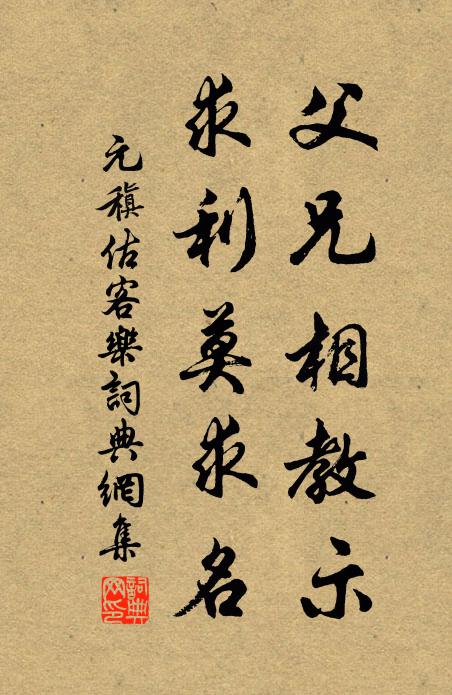 父兄相教示
求利莫求名
元稹估客樂詞典網集
詞典网印